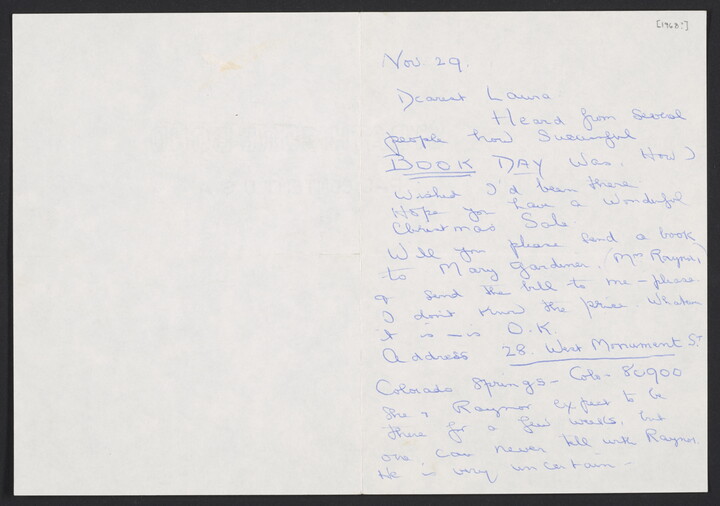 [1968?]
Nov. 29.
Dearest Laura
Heard from several
people how successful
BOOK DAY was. How I
wished I'd been there
Hope you have a wonderful
Christmas Sale.
Will you please send a book
to Mary Gardiner (Mrs Raynor)
& send the bill to me – please.
I don't know the price. Whatever
it is — is O.K.
Address 28. West Monument St
Colorado Springs – Colo – 80900
She & Raynor expect to be
there for a few weeks, but
one can never tell with Raynor.
He is very uncertain –